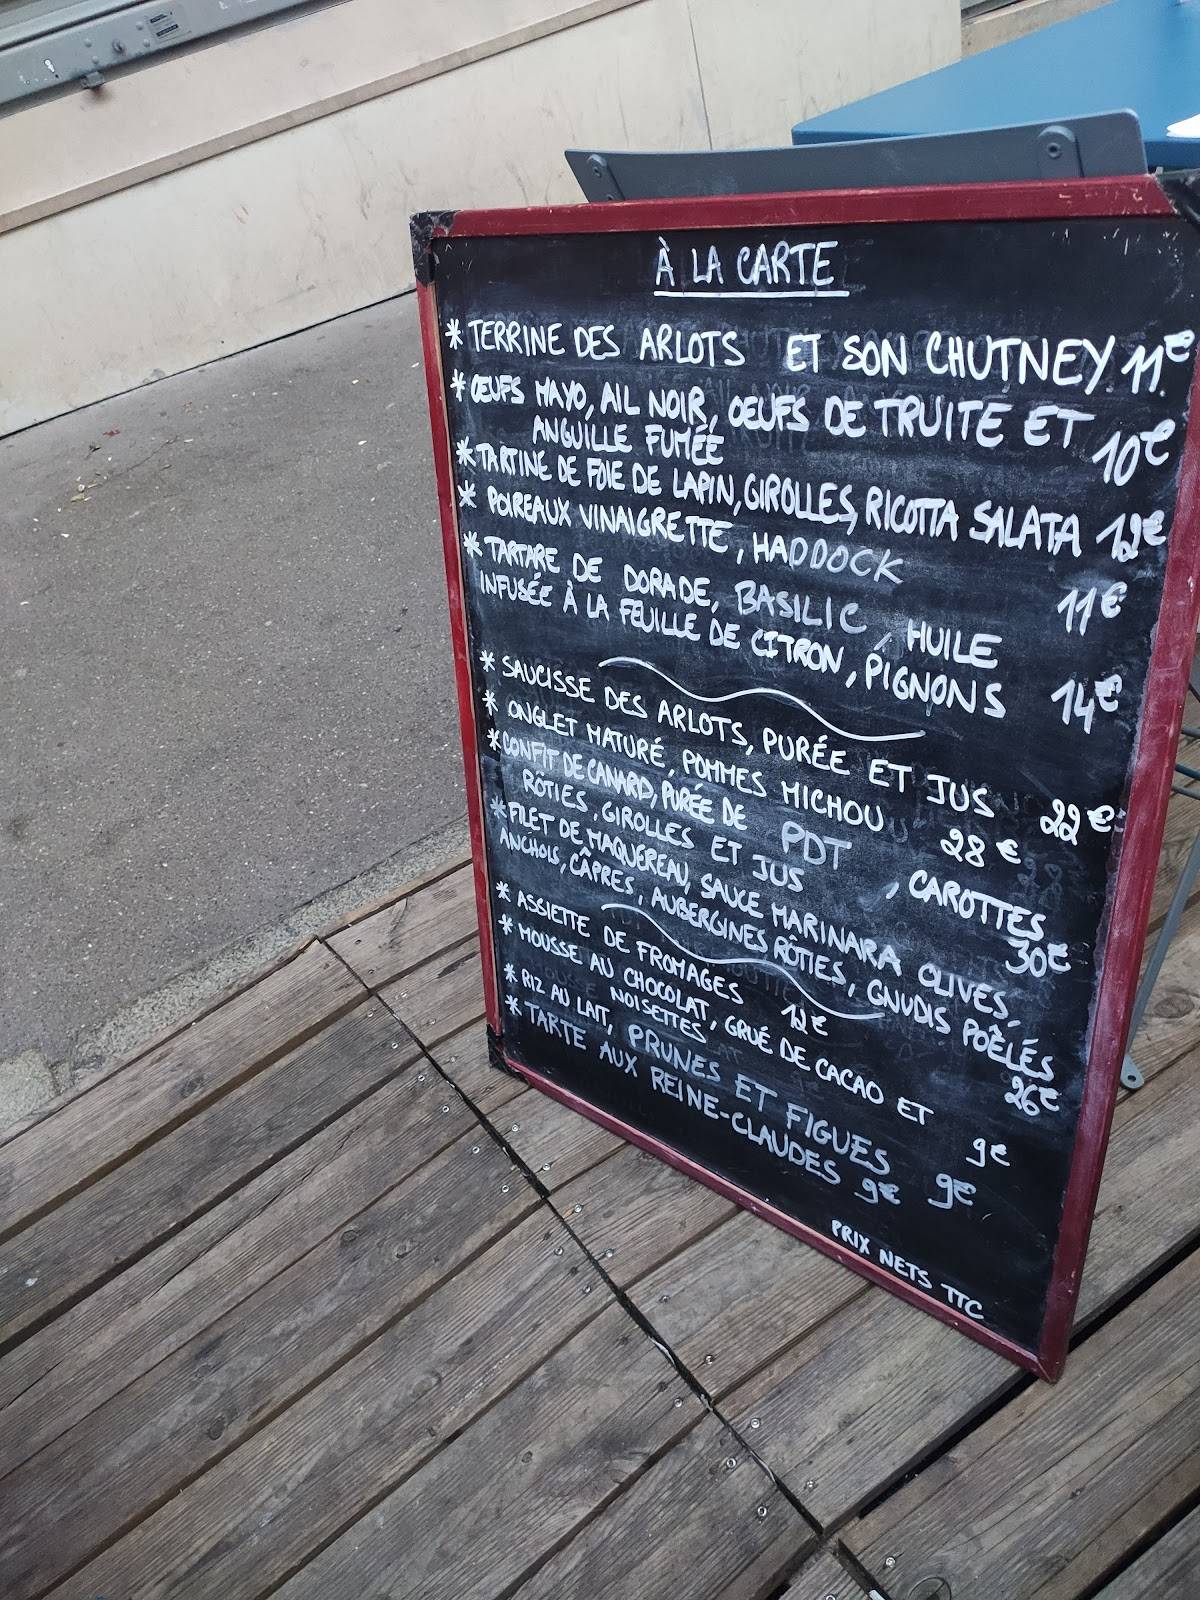 À LA CARTE
* TERRINE DES ARLOTS ET SON CHUTNEY 11€
* ŒUFS MAYO, AIL NOIR, OEUFS DE TRUITE ET
ANGUILLE FUMÉE 10€
* TARTINE DE FOIE DE LAPIN, GIROLLES, RICOTTA SALATA 12€
* POIREAUX VINAIGRETTE, HADDOCK 11€
* TARTARE DE DORADE, BASILIC, HUILE
INFUSÉE À LA FEUILLE DE CITRON, PIGNONS 14€
* SAUCISSE DES ARLOTS, PURÉE ET JUS 22€
* ONGLET MATURÉ, POMMES MICHOU 28€
* CONFIT DE CANARD, PURÉE DE PDT, CAROTTES
RÔTIES, GIROLLES ET JUS 30€
* FILET DE MAQUEREAU, SAUCE MARINARA OLIVES,
ANCHOIS, CÂPRES, AUBERGINES RÔTIES, GNUDIS POÊLÉS 26€
* ASSIETTE DE FROMAGES 12€
* MOUSSE AU CHOCOLAT, GRUÉ DE CACAO ET
NOISETTES 9€
* RIZ AU LAIT, PRUNES ET FIGUES 9€
* TARTE AUX REINE-CLAUDES 9€
PRIX NETS TTC